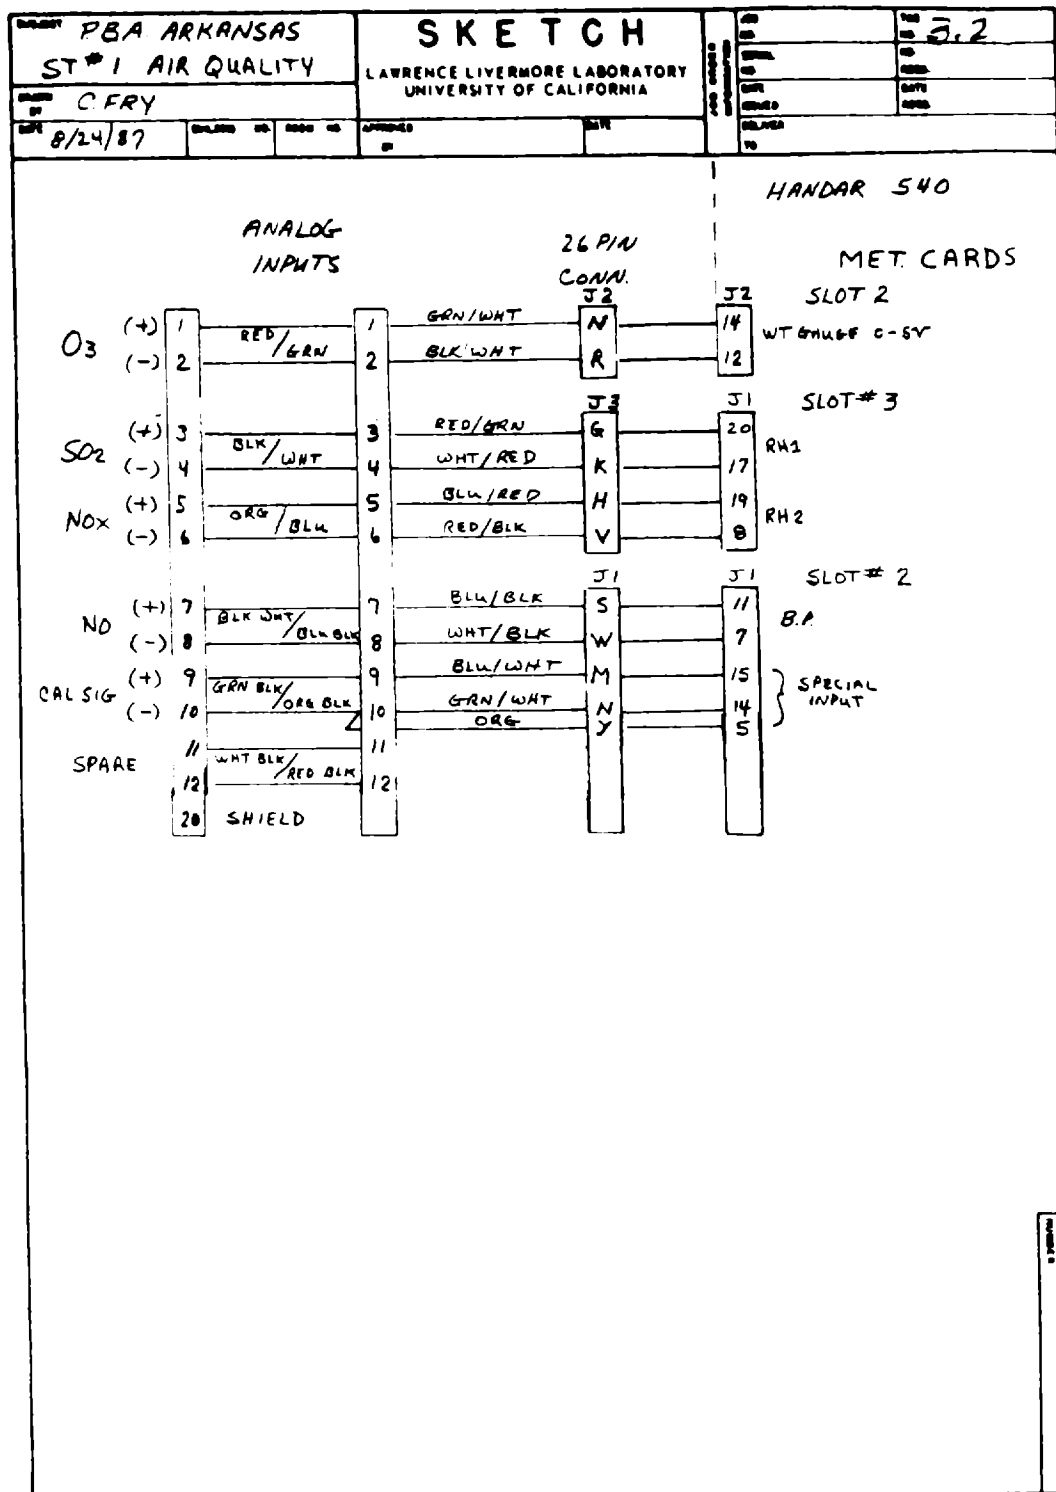 PBA ARKANSAS
ST #1 AIR QUALITY
C. FRY
DATE 8/24/87
SKETCH
LAWRENCE LIVERMORE LABORATORY
UNIVERSITY OF CALIFORNIA
APPROVED
BY
DATE
DELIVER
TO
HANDAR 540
ANALOG
INPUTS
26 PIN
CONN.
MET. CARDS
J2 J2 SLOT 2
O3 (+) 1 RED/GRN 1 GRN/WHT N 14 WT GAUGE 0-5V
(-) 2 2 BLK/WHT R 12
J1 SLOT # 3
SO2 (+) 3 BLK/WHT 3 RED/GRN G 20 RH1
(-) 4 4 WHT/RED K 17
NOX (+) 5 ORG/BLU 5 BLU/RED H 19 RH2
(-) 6 6 RED/BLK V 8
J1 J1 SLOT # 2
NO (+) 7 BLK WHT/BLU BLK 7 BLU/BLK S 11 B.P.
(-) 8 8 WHT/BLK W 7
CAL SIG (+) 9 GRN BLK/ORG BLK 9 BLU/WHT M 15 SPECIAL
(-) 10 10 GRN/WHT N 14 INPUT
ORG Y 5
SPARE 11 WHT BLK/RED BLK 11
12 12
20 SHIELD